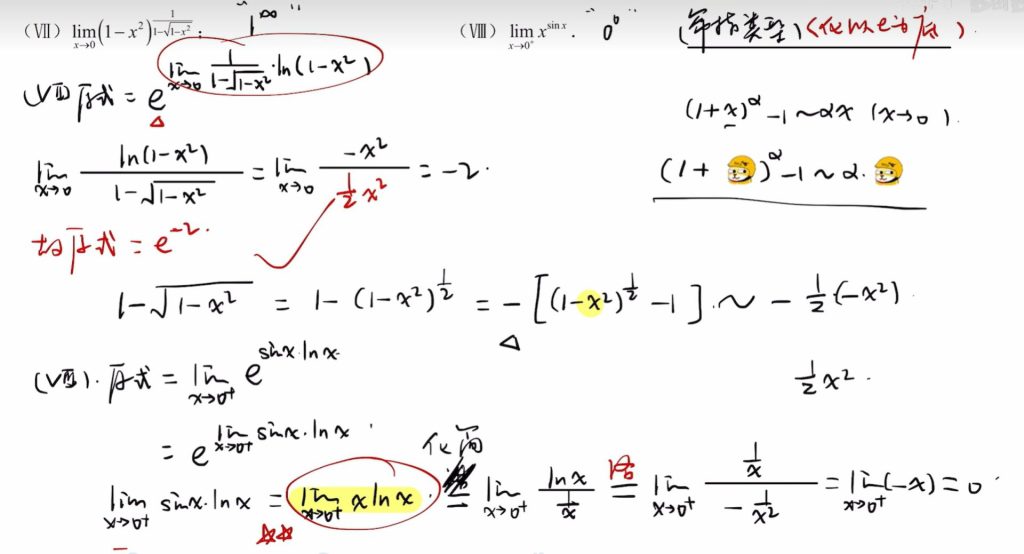 (Ⅶ) lim_{x→0} (1-x²)^{1/(1-√(1-x²))}; "1^∞"
(Ⅷ) lim_{x→0⁺} x^{sin x}. "0⁰"
(幂指类型)(化以e为底).
(Ⅶ) 原式 = e^{lim_{x→0} 1/(1-√(1-x²))·ln(1-x²)}
(1+x)^α -1~αx (x→0).
lim_{x→0} ln(1-x²)/(1-√(1-x²)) = lim_{x→0} -x²/(½x²) = -2.
(1+ )^α -1~α·
故原式 = e^{-2}.
1-√(1-x²) = 1-(1-x²)^{½} = -[(1-x²)^{½} -1]. ~ -½(-x²).
½x².
(Ⅷ). 原式 = lim_{x→0⁺} e^{sinx·lnx}
= e^{lim_{x→0⁺} sinx·lnx}.
化简
lim_{x→0⁺} sinx·lnx = lim_{x→0⁺} x lnx. = lim_{x→0⁺} lnx/(1/x) 洛= lim_{x→0⁺} (1/x)/(-1/x²) = lim_{x→0⁺} (-x) = 0.